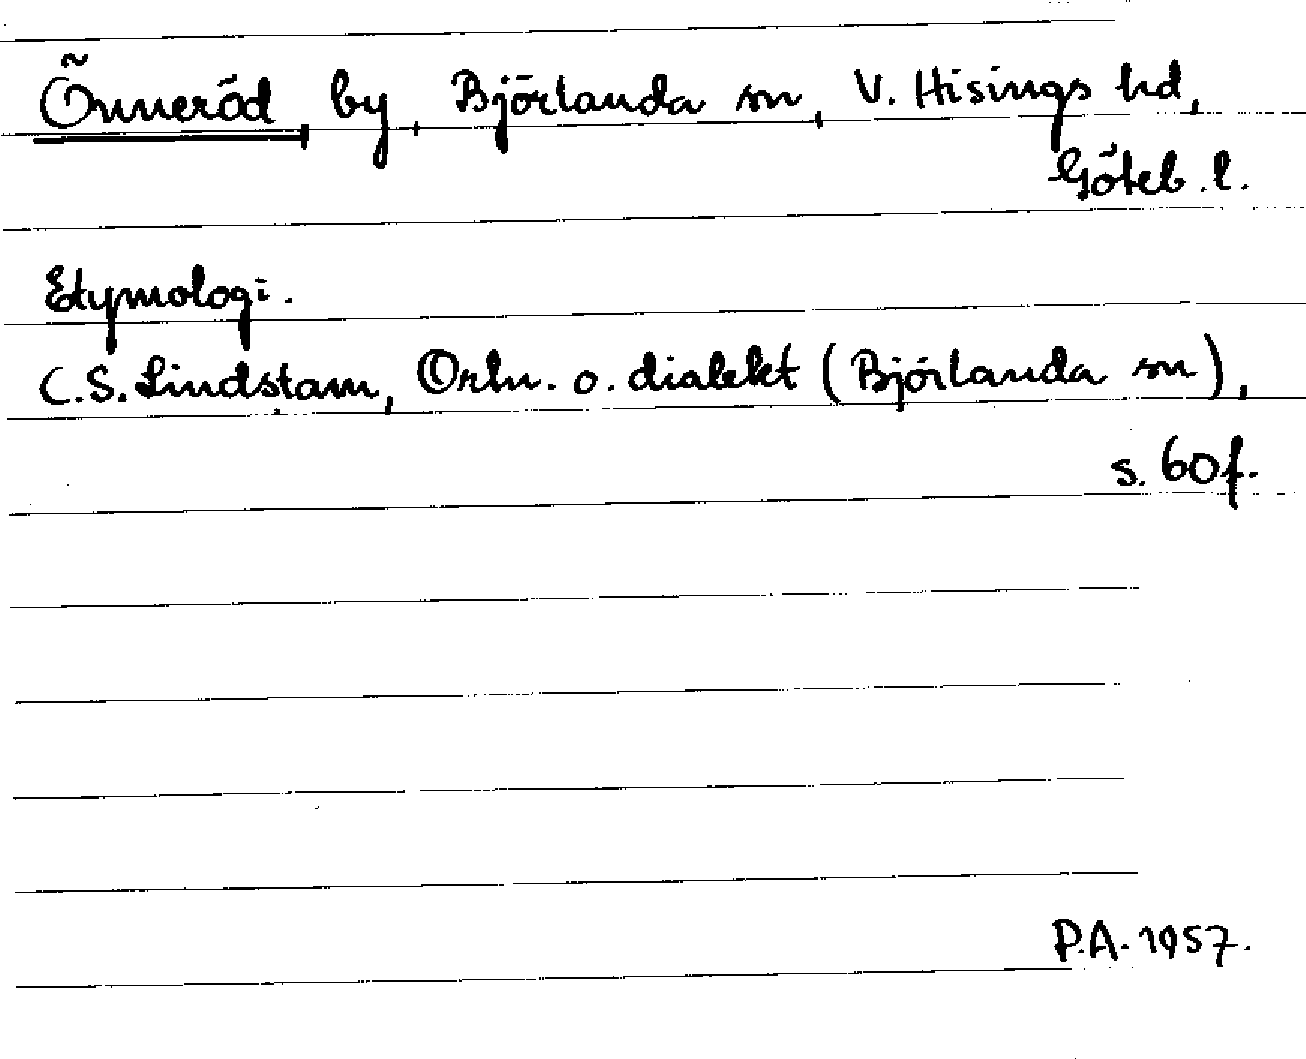 Önneröd by, Björlanda sn, V. Hisings hd,
Göteb. l.
Etymologi.
C.S. Lindstam, Ortn. o. dialekt (Björlanda sn),
s. 60 f.
P.A. 1957.